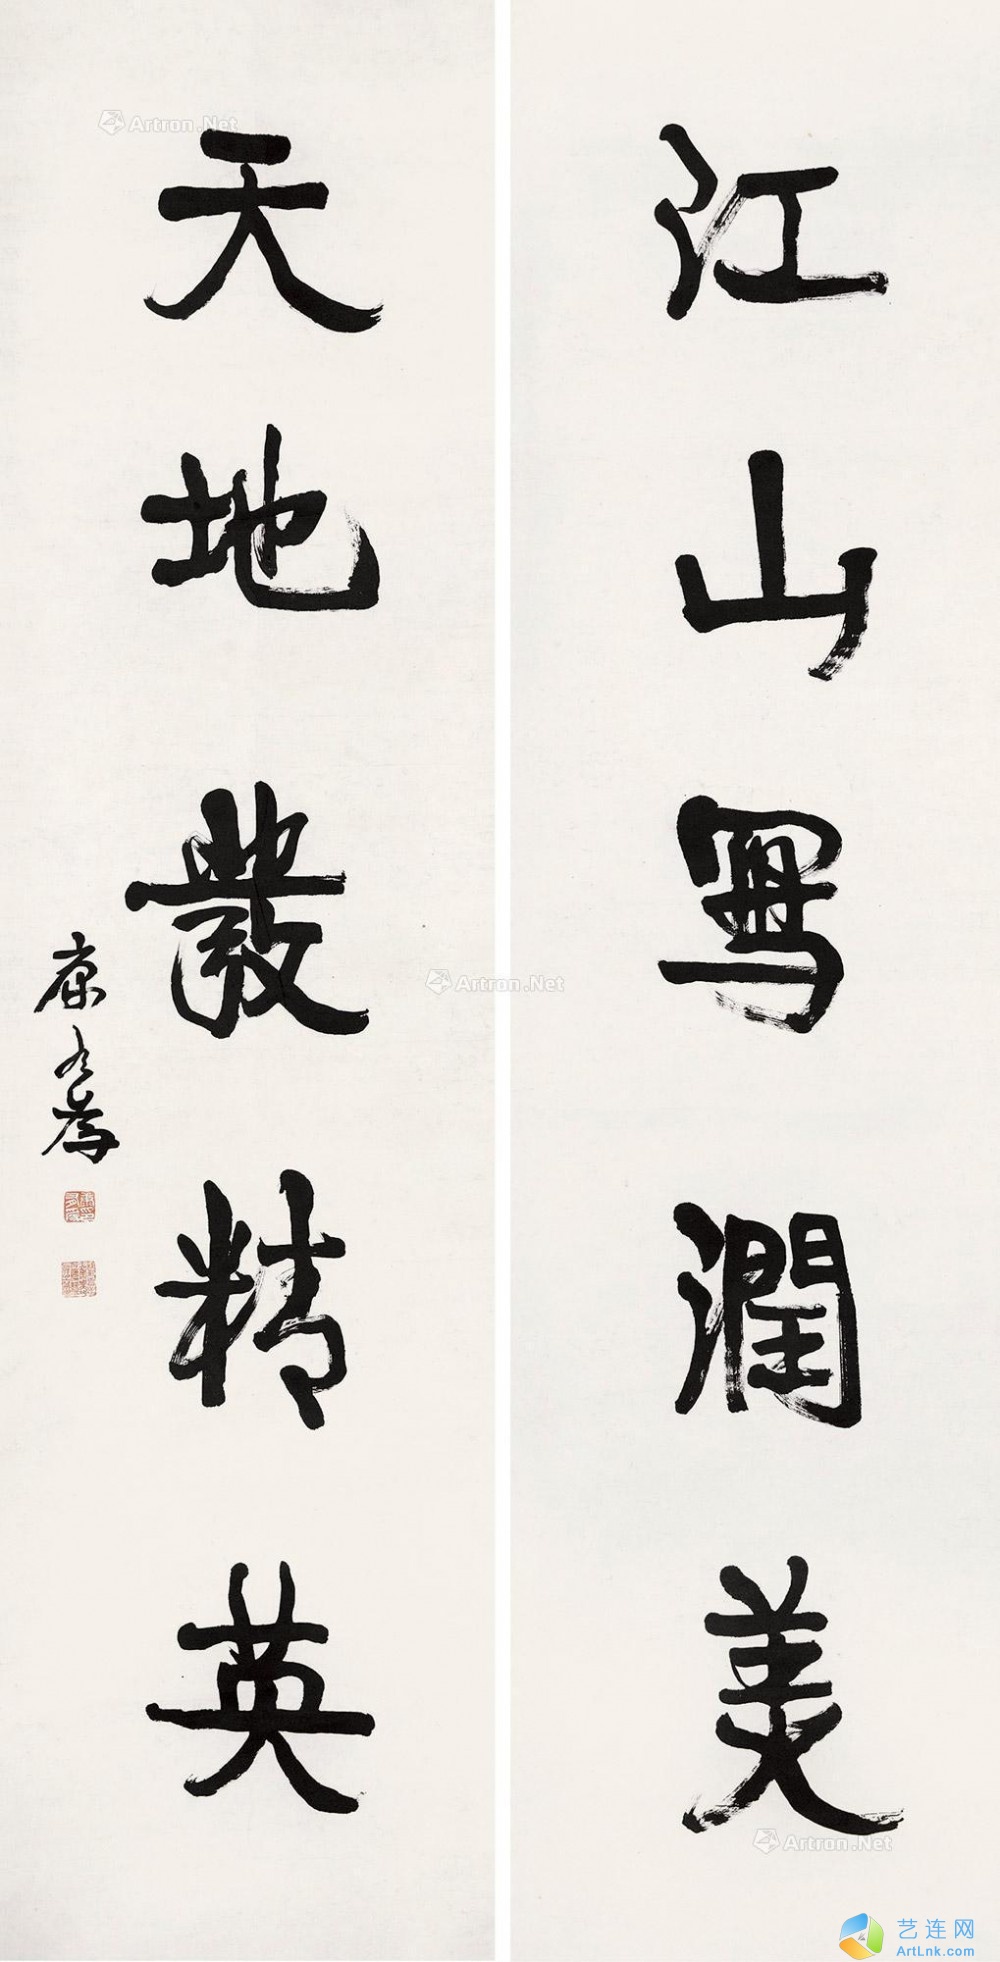 江山写潤美
天地發精英
康有為
Artron.Net
Artron.Net
Artron.Net
艺连网
ArtLnk.com